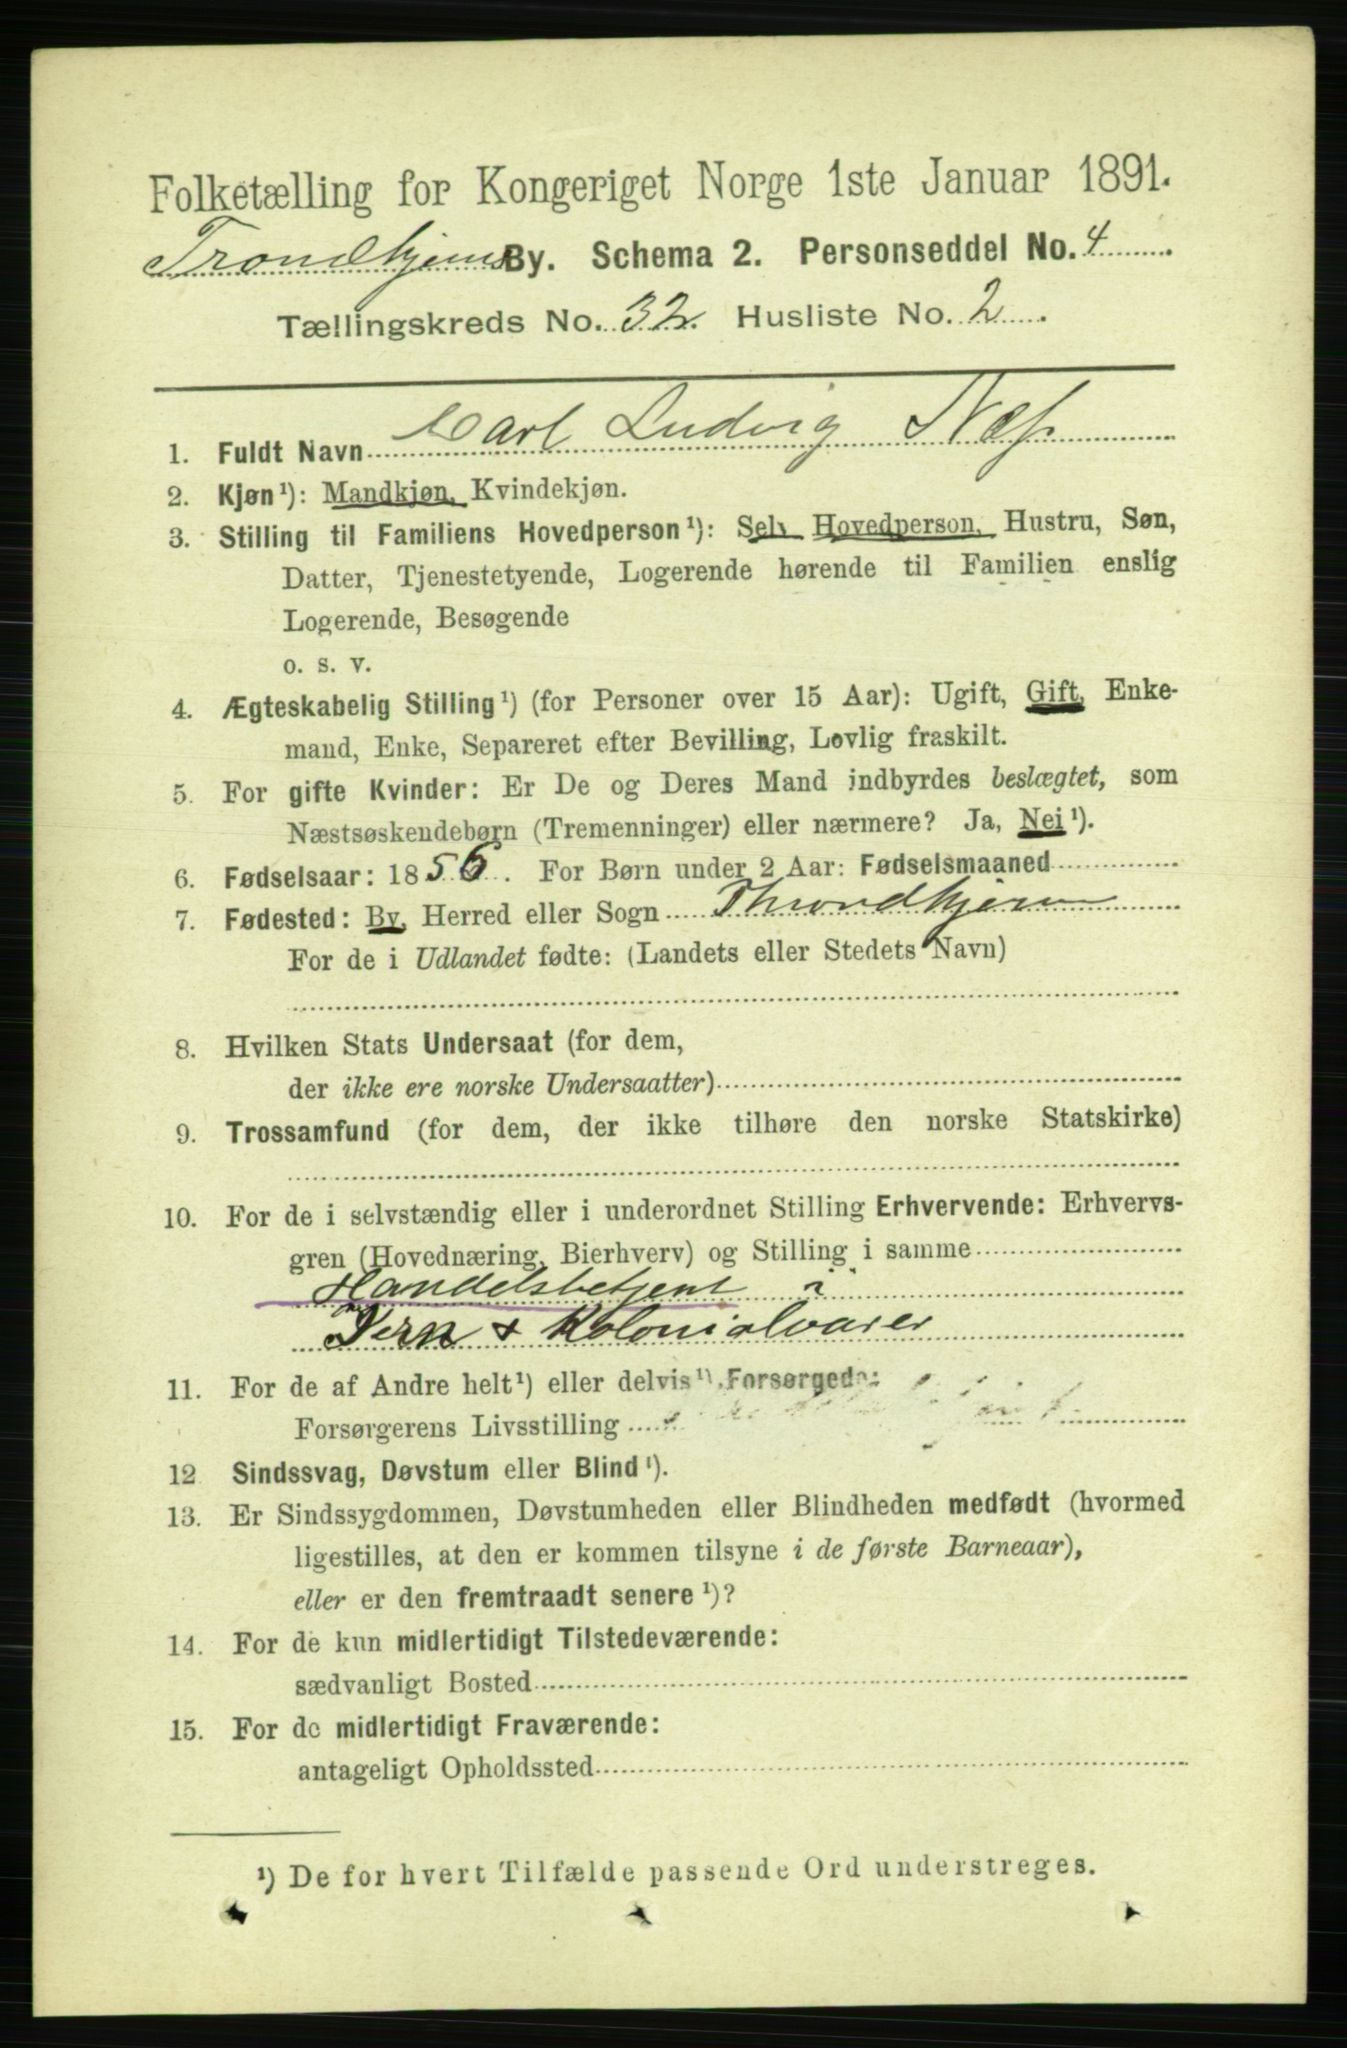 Folketælling for Kongeriget Norge 1ste Januar 1891.
Trondhjems By. Schema 2. Personseddel No. 4
Tællingskreds No. 32. Husliste No. 2
1. Fuldt Navn Carl Ludvig Næss
2. Kjøn¹): Mandkjøn, Kvindekjøn.
3. Stilling til Familiens Hovedperson¹): Selv Hovedperson, Hustru, Søn,
Datter, Tjenestetyende, Logerende hørende til Familien enslig
Logerende, Besøgende
o. s. v.
4. Ægteskabelig Stilling¹) (for Personer over 15 Aar): Ugift, Gift, Enke-
mand, Enke, Separeret efter Bevilling, Lovlig fraskilt.
5. For gifte Kvinder: Er De og Deres Mand indbyrdes beslægtet, som
Næstsøskendebørn (Tremenninger) eller nærmere? Ja, Nei¹).
6. Fødselsaar: 1856. For Børn under 2 Aar: Fødselsmaaned
7. Fødested: By, Herred eller Sogn Throndhjem
For de i Udlandet fødte: (Landets eller Stedets Navn)
8. Hvilken Stats Undersaat (for dem,
der ikke ere norske Undersaatter)
9. Trossamfund (for dem, der ikke tilhøre den norske Statskirke)
10. For de i selvstændig eller i underordnet Stilling Erhvervende: Erhvervs-
gren (Hovednæring, Bierhverv) og Stilling i samme
Handelsbetjent i
Jern & Kolonialvarer
11. For de af Andre helt¹) eller delvis¹) Forsørgede:
Forsørgerens Livsstilling
12 Sindssvag, Døvstum eller Blind¹).
13. Er Sindssygdommen, Døvstumheden eller Blindheden medfødt (hvormed
ligestilles, at den er kommen tilsyne i de første Barneaar),
eller er den fremtraadt senere¹)?
14. For de kun midlertidigt Tilstedeværende:
sædvanligt Bosted
15. For de midlertidigt Fraværende:
antageligt Opholdssted
¹) De for hvert Tilfælde passende Ord understreges.